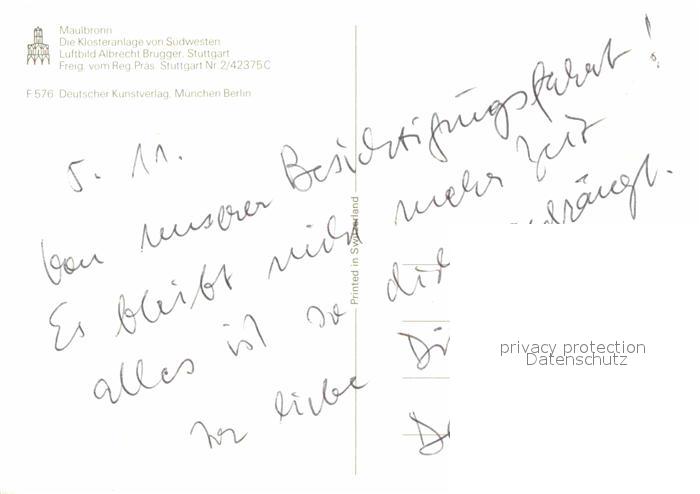 Maulbronn
Die Klosteranlage von Südwesten
Luftbild Albrecht Brugger, Stuttgart
Freig. vom Reg. Präs. Stuttgart Nr. 2/42375 C
F 576 Deutscher Kunstverlag, München Berlin
5. 11.
Von unserer Besichtigungsfahrt!
Es bleibt nicht mehr Zeit
alles ist so
liebe
Printed in Switzerland
privacy protection
Datenschutz